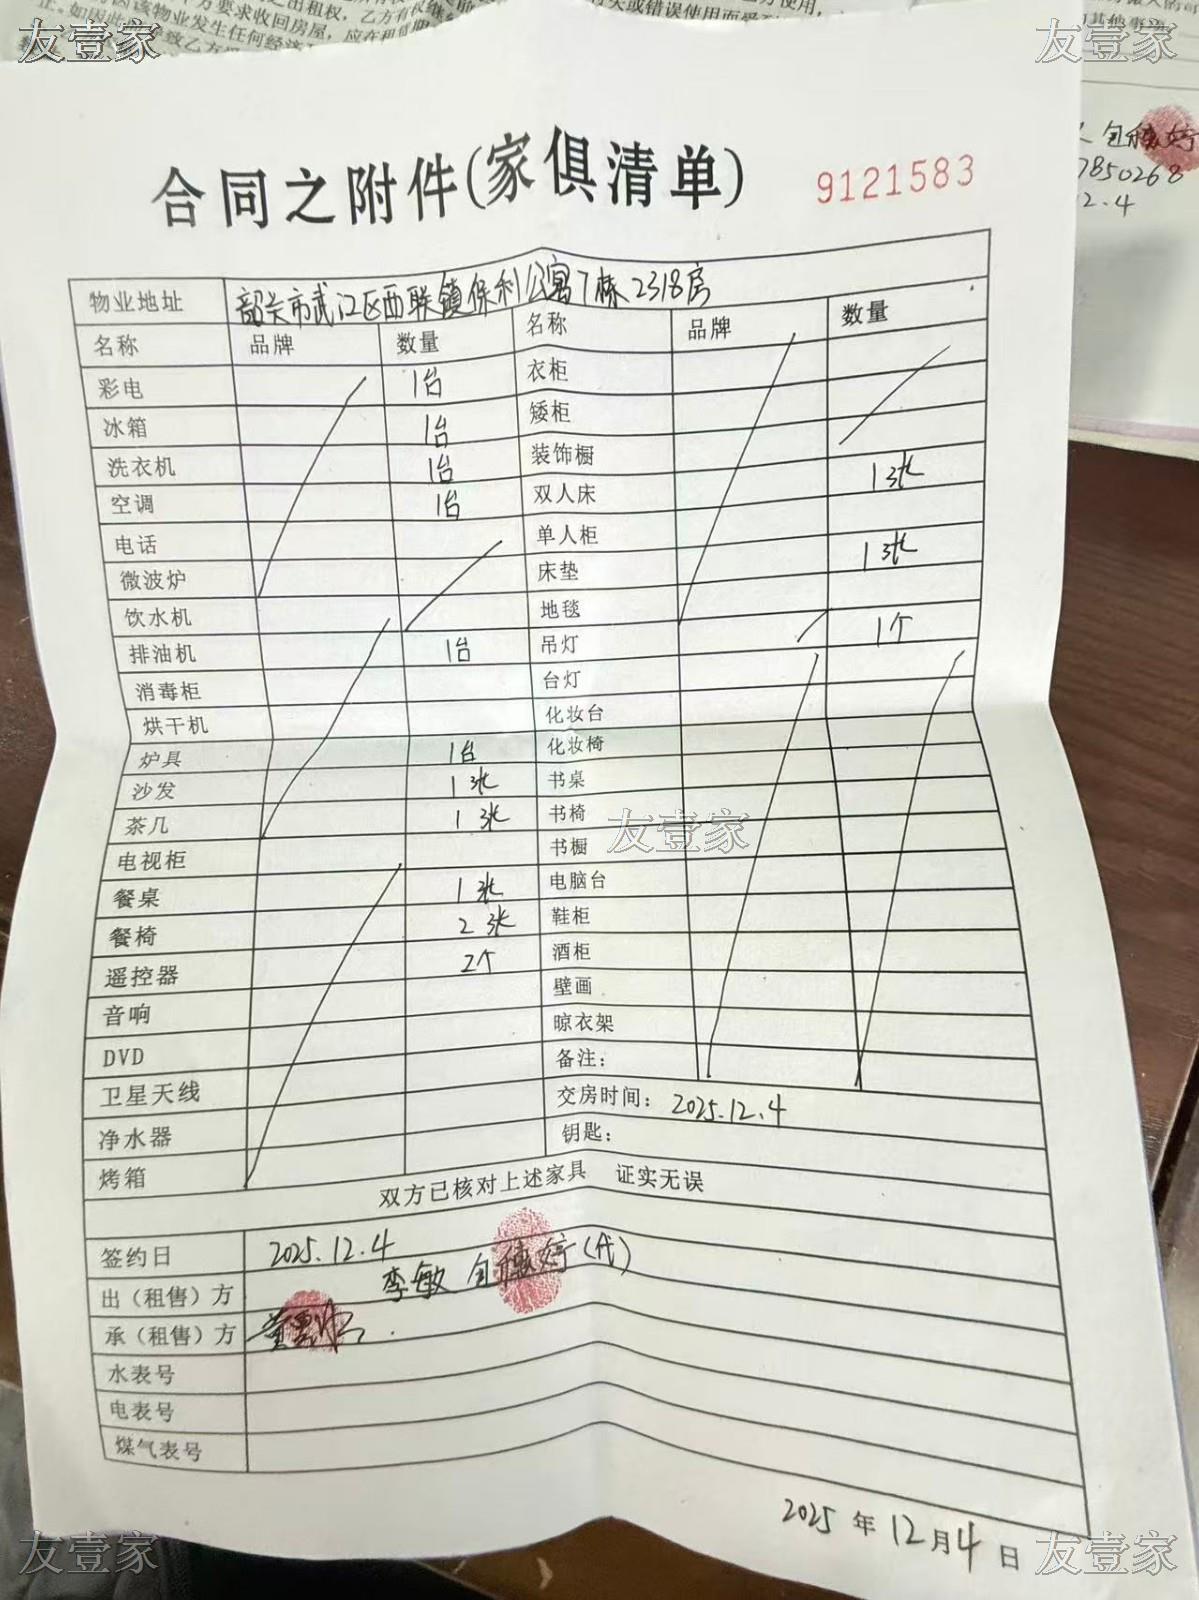 友壹家
友壹家
方要求收回房屋，应在租
其他事
7850268
12.4
合同之附件(家俱清单)
9121583
物业地址 韶关市武江区西联镇保利公寓7栋2318房
名称 品牌 数量 名称 品牌 数量
彩电 1台 衣柜
冰箱 1台 矮柜
洗衣机 1台 装饰橱
空调 1台 双人床 1张
电话 单人柜
微波炉 床垫 1张
饮水机 地毯
排油机 1台 吊灯 1个
消毒柜 台灯
烘干机 化妆台
炉具 1台 化妆椅
沙发 1张 书桌
茶几 1张 书椅
电视柜 书橱
友壹家
餐桌 1张 电脑台
餐椅 2张 鞋柜
遥控器 2个 酒柜
音响 壁画
DVD 晾衣架
卫星天线 备注：
净水器 交房时间：2025.12.4
烤箱 钥匙：
双方已核对上述家具 证实无误
签约日 2025.12.4
出（租售）方 李敏 穗婷(代)
承（租售）方
水表号
电表号
煤气表号
2025年12月4日
友壹家
友壹家